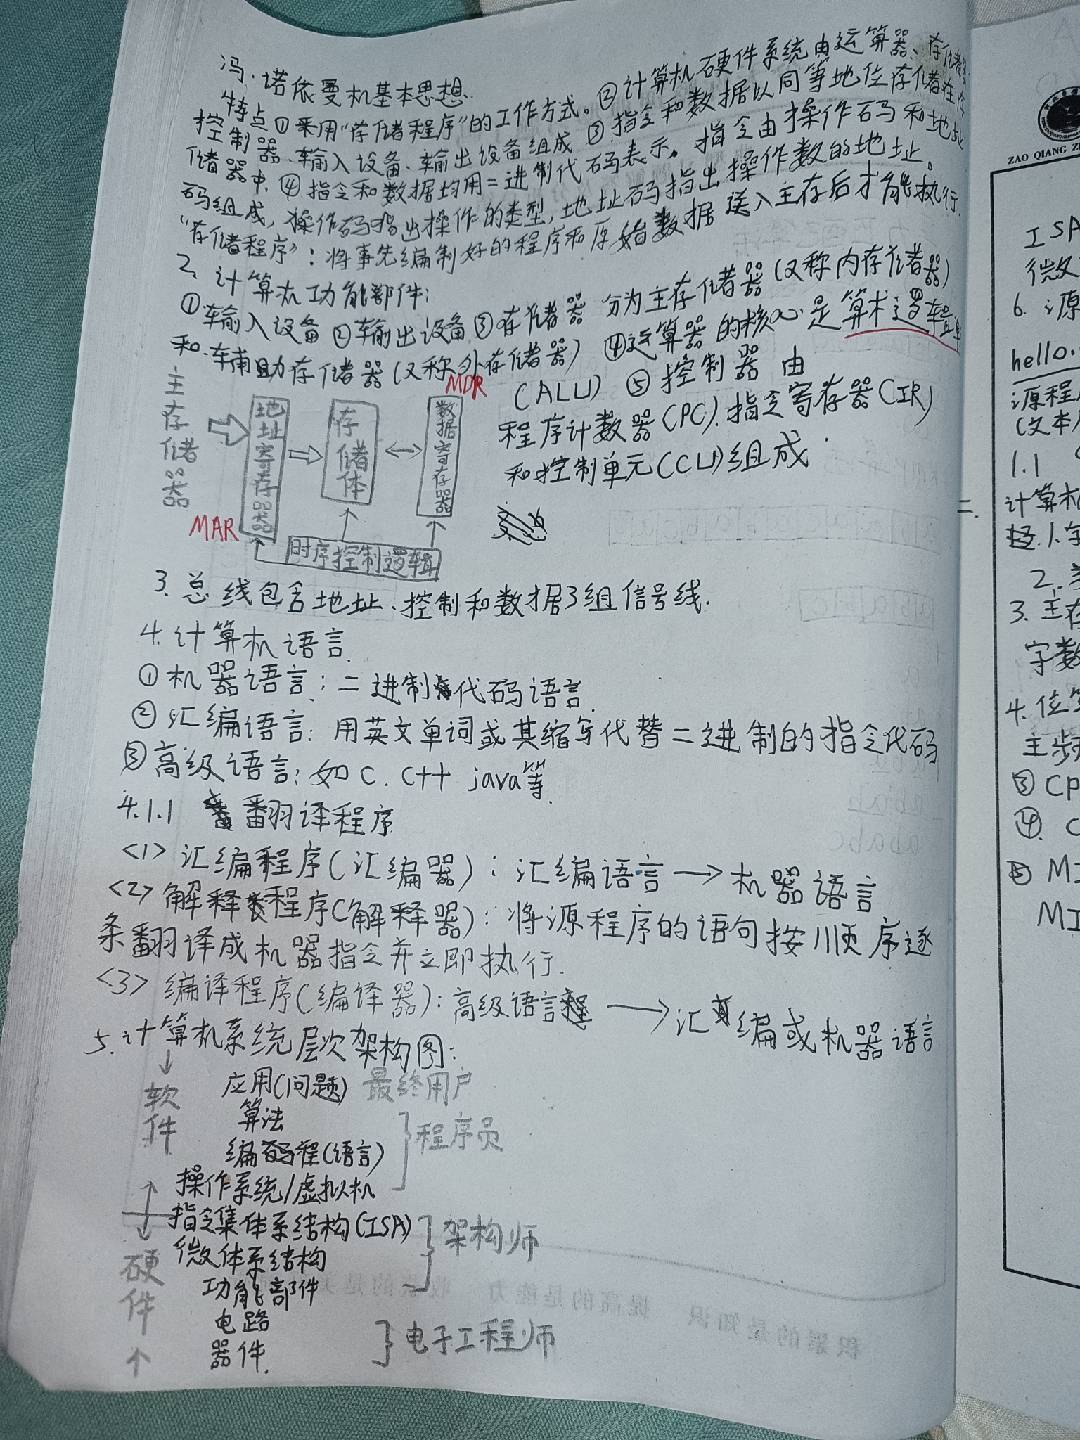 冯·诺依曼机基本思想.
特点①采用“存储程序”的工作方式。②计算机硬件系统由运算器、存储器、
控制器、输入设备、输出设备组成 ③指令和数据以同等地位存储在
储器中. ④指令和数据均用二进制代码表示。指令由操作码和地址
码组成,操作码指出操作的类型,地址码指出操作数的地址。
“存储程序”:将事先编制好的程序和原始数据送入主存后才能执行.
2. 计算机功能部件:
①输入设备②输出设备③存储器 分为主存储器(又称内存储器)
和辅助存储器(又称外存储器) ④运算器的核心是算术逻辑
(ALU) ⑤控制器 由
程序计数器(PC).指令寄存器(IR)
和控制单元(CU)组成.
主存储器
地址寄存器
存储体
数据寄存器
MDR
MAR
时序控制逻辑
3.总线包含地址、控制和数据3组信号线.
4.计算机语言.
①机器语言:二进制代码语言.
②汇编语言:用英文单词或其缩写代替二进制的指令代码
③高级语言:如C.C++ java等.
4.1.1 翻译程序
<1>汇编程序(汇编器):汇编语言→机器语言
<2>解释程序(解释器):将源程序的语句按顺序逐
条翻译成机器指令并立即执行.
<3>编译程序(编译器):高级语言→汇编或机器语言
5.计算机系统层次架构图:
软件
应用(问题) 最终用户
算法
程序员
编程(语言)
操作系统/虚拟机
指令集体系结构(ISA)
架构师
微体系结构
硬件
功能部件
电路
电子工程师
器件.
ZAO QIANG Z
ISA
微
6.源
hello.
源程
(文本
1.1
计算机
2.
3.主存
字数
4.位
主频
③CP
④C
⑤MI
MI
二.
积累的是知识 提高的是能力 收获的是